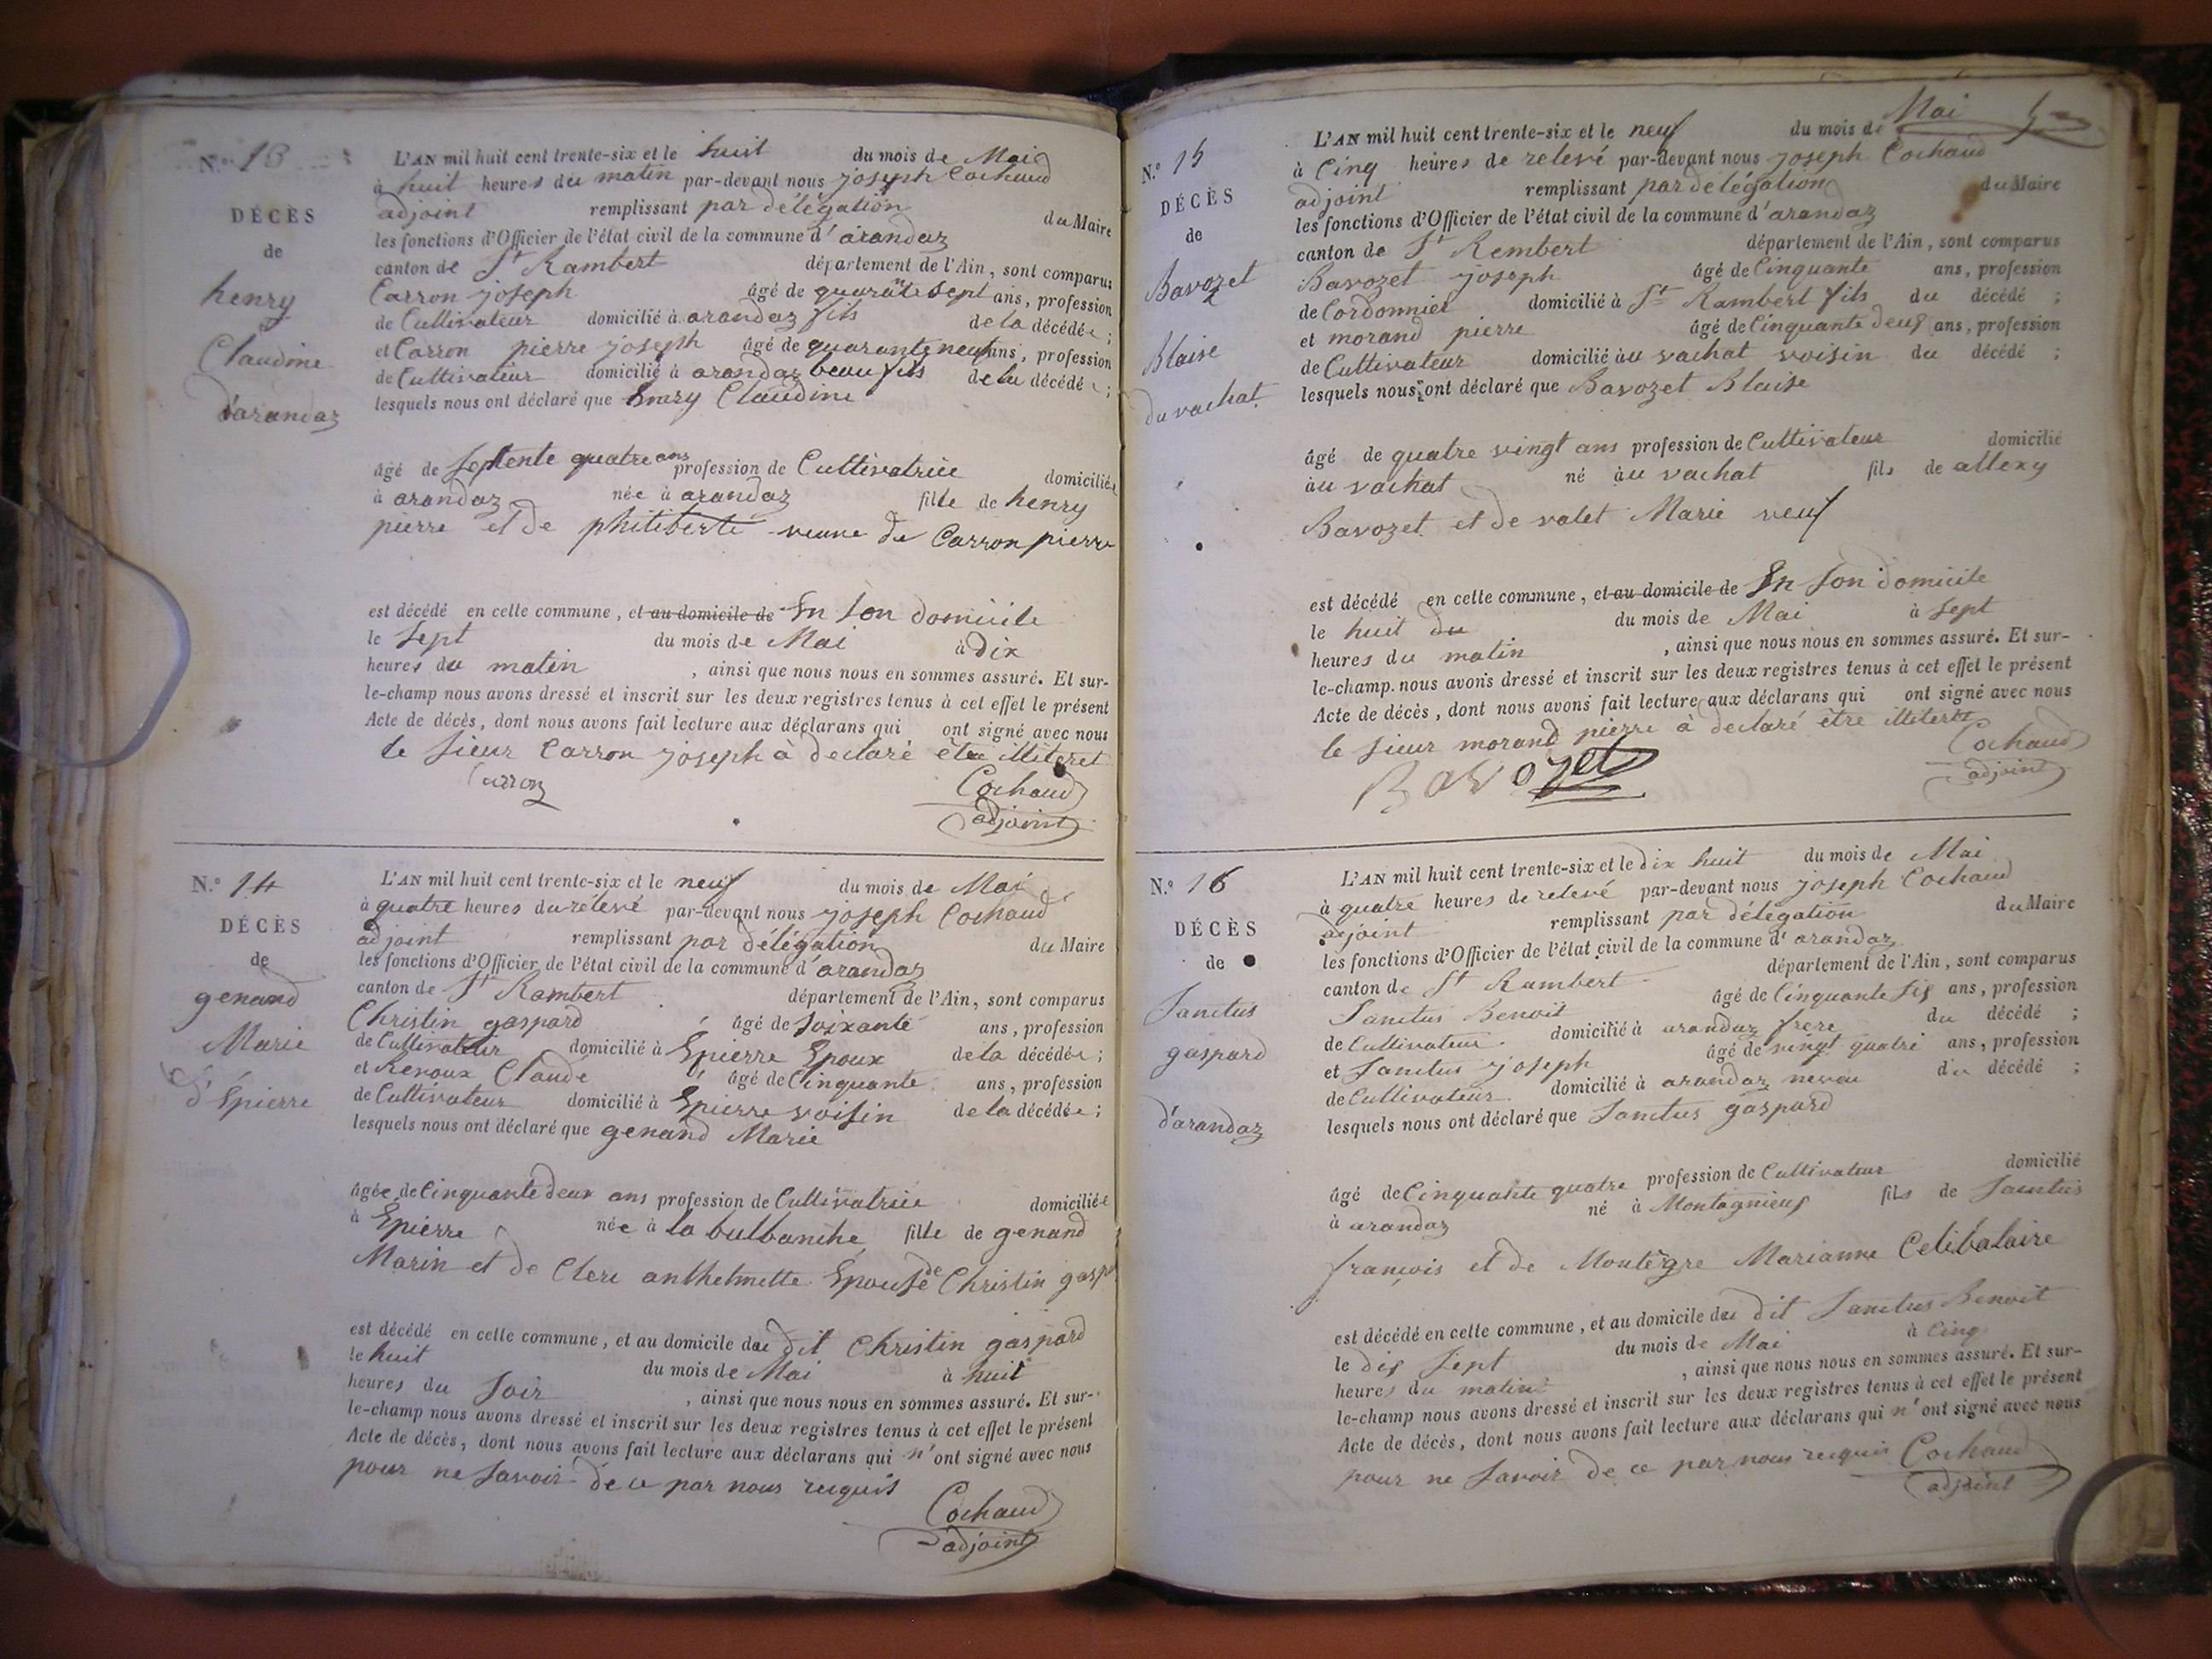 N.° 13
DÉCÈS
de
henry
Claudine
d'arandaz
L'AN mil huit cent trente-six et le huit du mois de Mai
à huit heures du matin par-devant nous joseph Cochaud
adjoint remplissant par délégation du Maire
les fonctions d'Officier de l'état civil de la commune d'arandaz
canton de St Rambert département de l'Ain, sont comparus
Carron joseph âgé de quarante sept ans, profession
de Cultivateur domicilié à arandaz fils de la décédée;
et Carron pierre joseph âgé de quarante neuf ans, profession
de Cultivateur domicilié à arandaz beau fils de la décédée;
lesquels nous ont déclaré que henry Claudine
âgé de septente quatre ans profession de Cultivatrice domiciliée
à arandaz née à arandaz fille de henry
pierre et de philiberte veuve de Carron pierre
est décédé en cette commune, et au domicile de En son domicile
le sept du mois de Mai à dix
heures du matin, ainsi que nous nous en sommes assuré. Et sur-
le-champ nous avons dressé et inscrit sur les deux registres tenus à cet effet le présent
Acte de décès, dont nous avons fait lecture aux déclarans qui ont signé avec nous
le sieur Carron joseph à declaré être illiteret
Carron Cochaud
adjoint
N.° 14
DÉCÈS
de
genand
Marie
d'Epierre
L'AN mil huit cent trente-six et le neuf du mois de Mai
à quatre heures du rélevé par-devant nous joseph Cochaud
adjoint remplissant par délégation du Maire
les fonctions d'Officier de l'état civil de la commune d'arandaz
canton de St Rambert département de l'Ain, sont comparus
Christin gaspard âgé de soixante ans, profession
de Cultivateur domicilié à Epierre Epoux de la décédée;
et Renoux Claude âgé de Cinquante ans, profession
de Cultivateur domicilié à Epierre voisin de la décédée;
lesquels nous ont déclaré que genand Marie
âgée de Cinquante deux ans profession de Cultivatrice domiciliée
à Epierre née à la bulbanche fille de genand
Marin et de Clerc anthelmette Epouse de Christin gaspa
est décédé en cette commune, et au domicile du dit Christin gaspard
le huit du mois de Mai à huit
heures du soir, ainsi que nous nous en sommes assuré. Et sur-
le-champ nous avons dressé et inscrit sur les deux registres tenus à cet effet le présent
Acte de décès, dont nous avons fait lecture aux déclarans qui n'ont signé avec nous
pour ne savoir de ce par nous requis
Cochaud
adjoint
Mai
N.° 15
DÉCÈS
de
Bavozet
Blaise
du vachat
L'AN mil huit cent trente-six et le neuf du mois de
à Cinq heures de relevé par-devant nous joseph Cochaud
adjoint remplissant par delégation du Maire
les fonctions d'Officier de l'état civil de la commune d'arandaz
canton de St Rembert département de l'Ain, sont comparus
Bavozet joseph âgé de Cinquante ans, profession
de Cordonnier domicilié à St Rambert fils du décédé;
et morand pierre âgé de Cinquante deux ans, profession
de Cultivateur domicilié au vachat voisin du décédé;
lesquels nous ont déclaré que Bavozet Blaise
âgé de quatre vingt ans profession de Cultivateur domicilié
au vachat né au vachat fils de allexy
Bavozet et de valet Marie veuf
est décédé en cette commune, et au domicile de En son domicile
le huit du du mois de Mai à sept
heures du matin, ainsi que nous nous en sommes assuré. Et sur-
le-champ nous avons dressé et inscrit sur les deux registres tenus à cet effet le présent
Acte de décès, dont nous avons fait lecture aux déclarans qui ont signé avec nous
le sieur morand pierre à declaré être illiteret
Bavozet Cochaud
adjoint
N.° 16
DÉCÈS
de
Sanctus
gaspard
d'arandaz
L'AN mil huit cent trente-six et le dix huit du mois de Mai
à quatre heures de relevé par-devant nous joseph Cochaud
adjoint remplissant par délégation du Maire
les fonctions d'Officier de l'état civil de la commune d'arandaz
canton de St Rambert département de l'Ain, sont comparus
Sanctus Benoit âgé de Cinquante six ans, profession
de Cultivateur domicilié à arandaz frere du décédé;
et Sanctus joseph âgé de vingt quatre ans, profession
de Cultivateur domicilié à arandaz neveu du décédé;
lesquels nous ont déclaré que Sanctus gaspard
âgé de Cinquante quatre profession de Cultivateur domicilié
à arandaz né à Montagnieux fils de Sanctus
françois et de Montègre Marianne Celibataire
est décédé en cette commune, et au domicile du dit Sanctus Benoit
le dix sept du mois de Mai à Cinq
heures du matin, ainsi que nous nous en sommes assuré. Et sur-
le-champ nous avons dressé et inscrit sur les deux registres tenus à cet effet le présent
Acte de décès, dont nous avons fait lecture aux déclarans qui n'ont signé avec nous
pour ne savoir de ce par nous requis Cochaud
adjoint